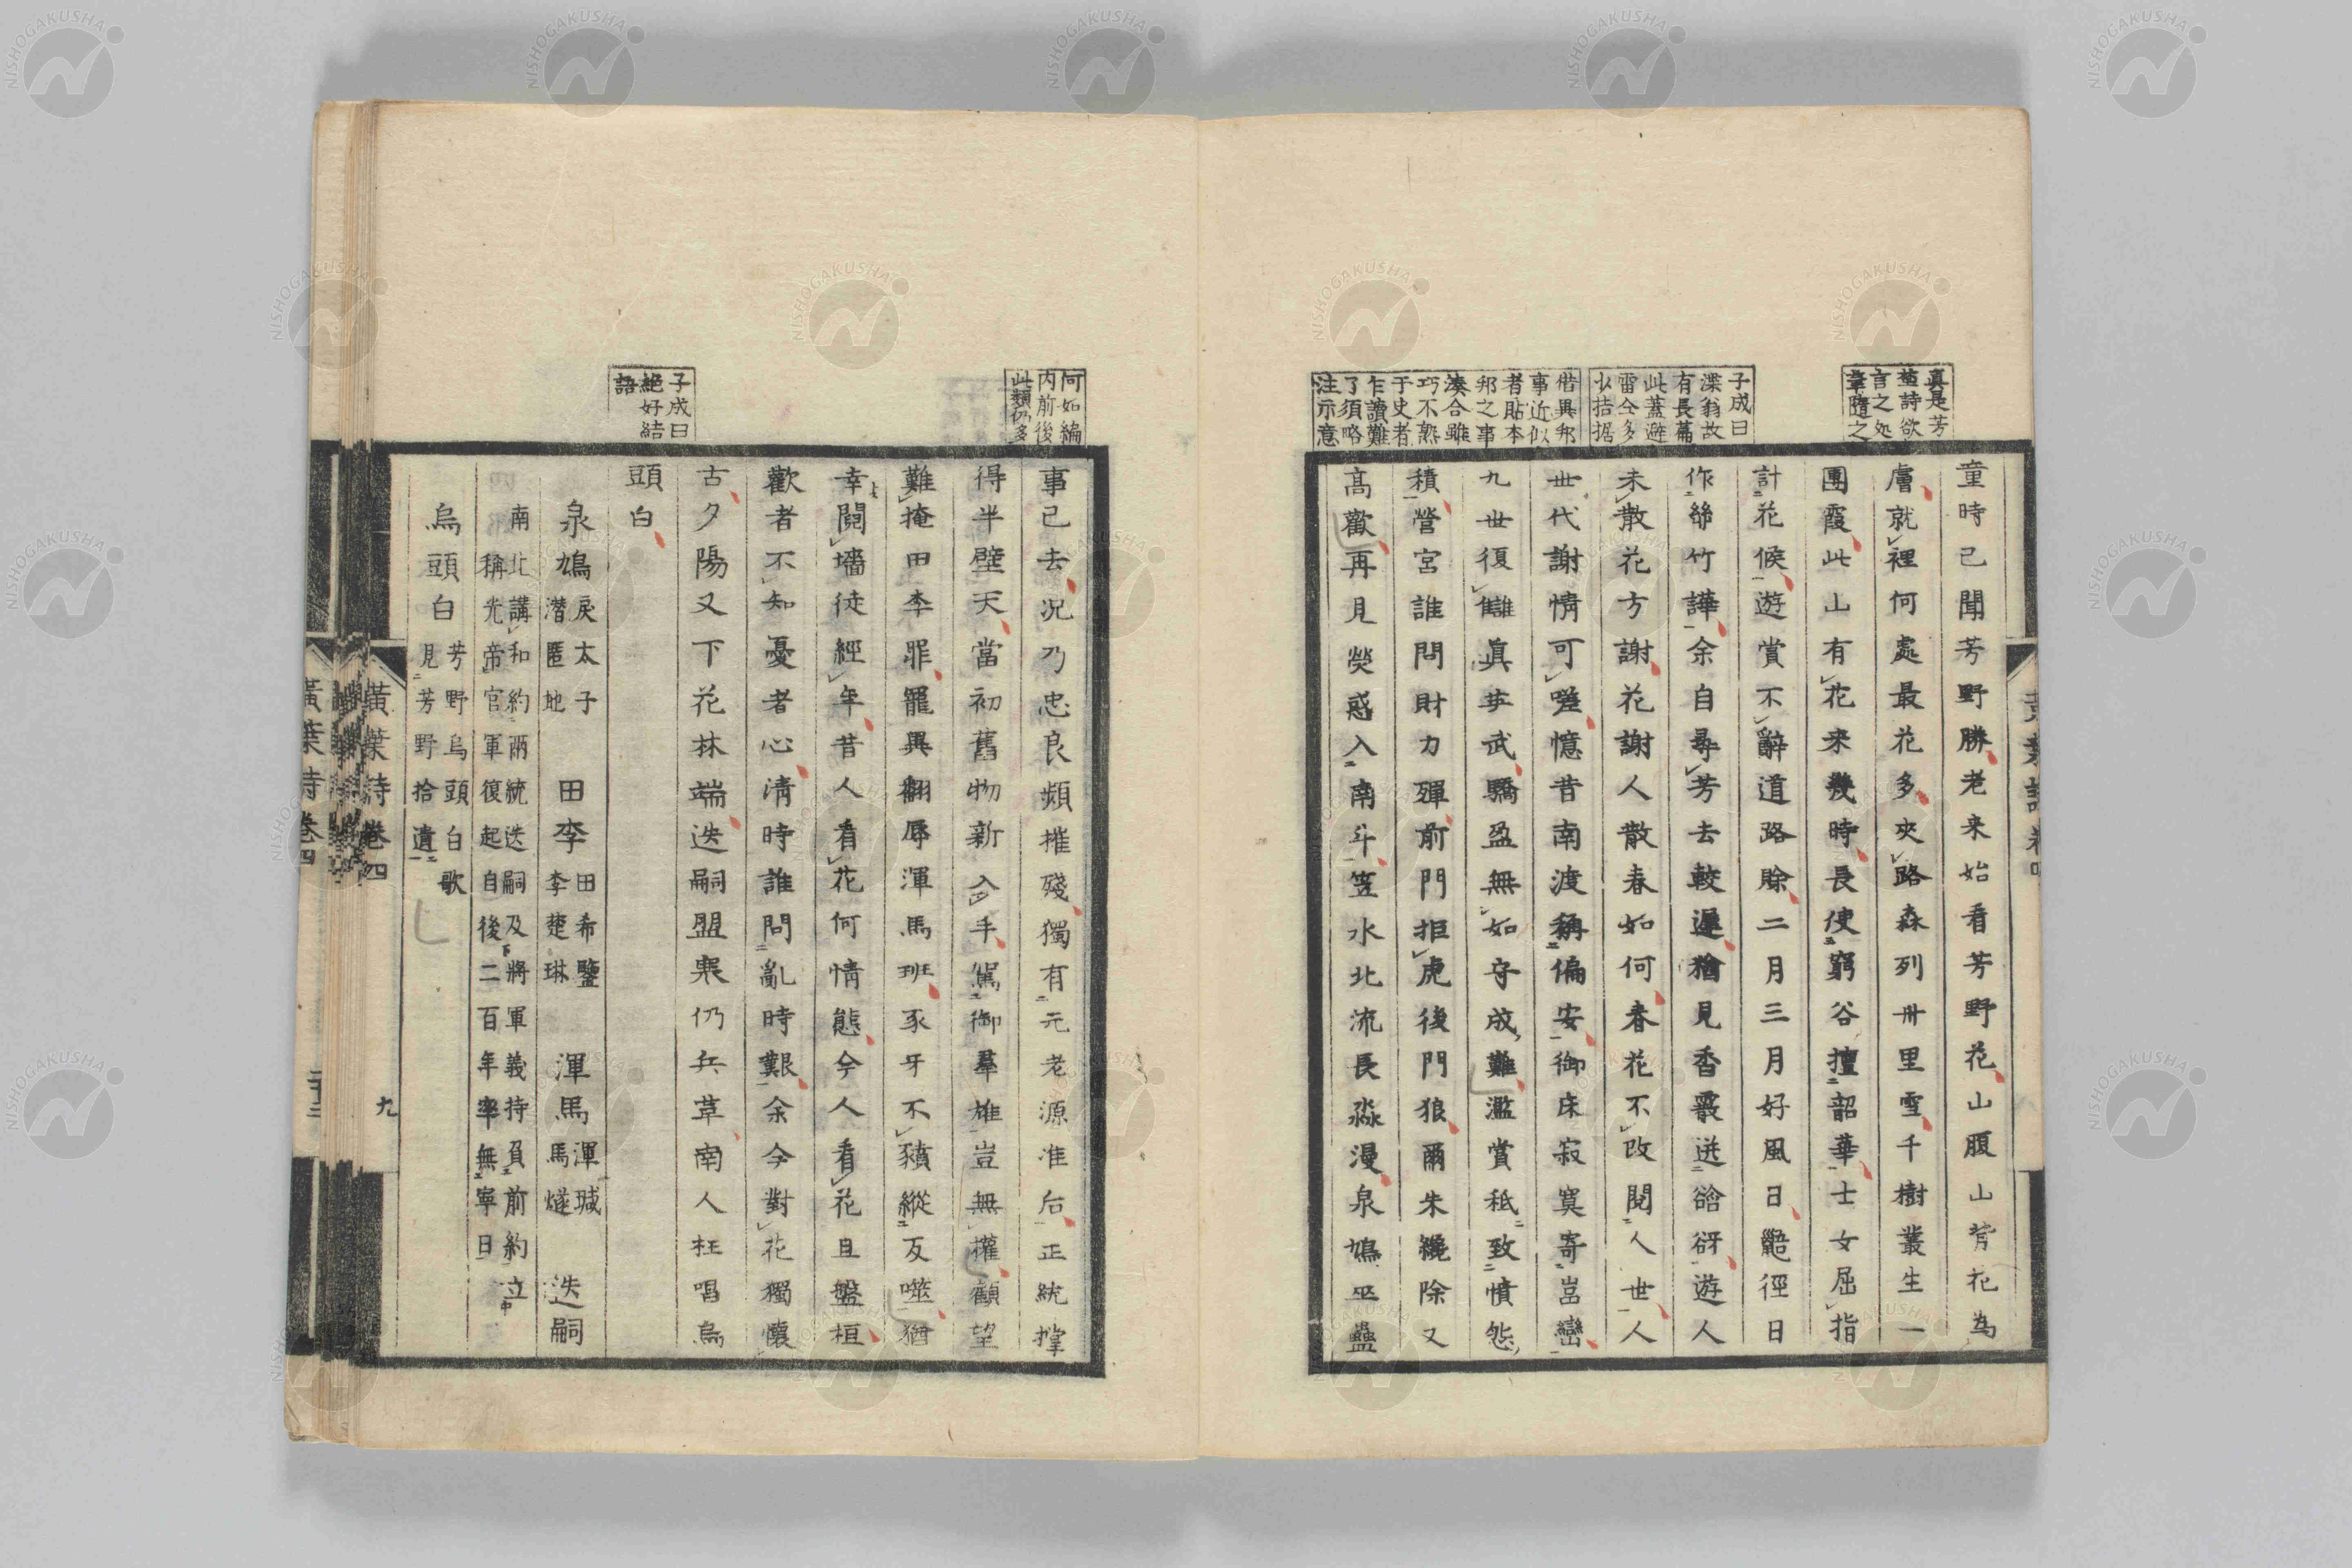 真是芳
埜詩欲
言之処
童時已聞芳野勝老来始看芳野花山腹山背花為
膚就裡何處最花多夾路森列卅里雪千樹叢生一
團霞此山有花来幾時長使窮谷擅韶華士女屈指
計花候遊賞不辭道路賒二月三月好風日
径日
子成曰
深翁故
有長篇
此蓋避
雷仝多
以拮据
作節竹譁余自尋芳去較遲猶見香叢迸谽谺遊人
未散花方謝花謝人散春如何春花不改閱人世人
世代謝情可嗟憶昔南渡稱偏安御床寂寞寄嵓巒
九世復讎真英武驕盈無如守成難濫賞秖致憤怨
積營宮誰問財力殫前門拒虎後門狼爾朱纔除又
高歡再見熒惑入南斗笠水北流長淼漫泉鳩巫蠱
借異邦
事近似
者貼本
邦之事
湊合雖
巧不熟
于史者
乍讀難
了須略
注示意
何如編
内前後
此類仍多
事已去況乃忠良頻摧殘獨有元老源准后正統撑
得半壁天當初舊物新入手駕御羣雄豈無權顧望
難掩田李罪寵異翻辱渾馬班豕牙不豶縱反噬猶
幸鬩墻徒經年昔人看花何情態今人看花且盤桓
歡者不知憂者心清時誰問亂時艱余今對花獨懷
古夕陽又下花林端迭嗣盟寒仍兵革南人枉唱烏
頭白
子成曰
絶好結
語
泉鳩 戾太子潜匿地 田李 田希鑒李楚琳 渾馬 渾瑊馬燧 迭嗣
南北講和約兩統迭嗣及將軍義持負前約立
稱光帝官軍復起自後二百年率無寧日
烏頭白 芳野烏頭白歌見芳野拾遺
黄葉詩 卷四
九